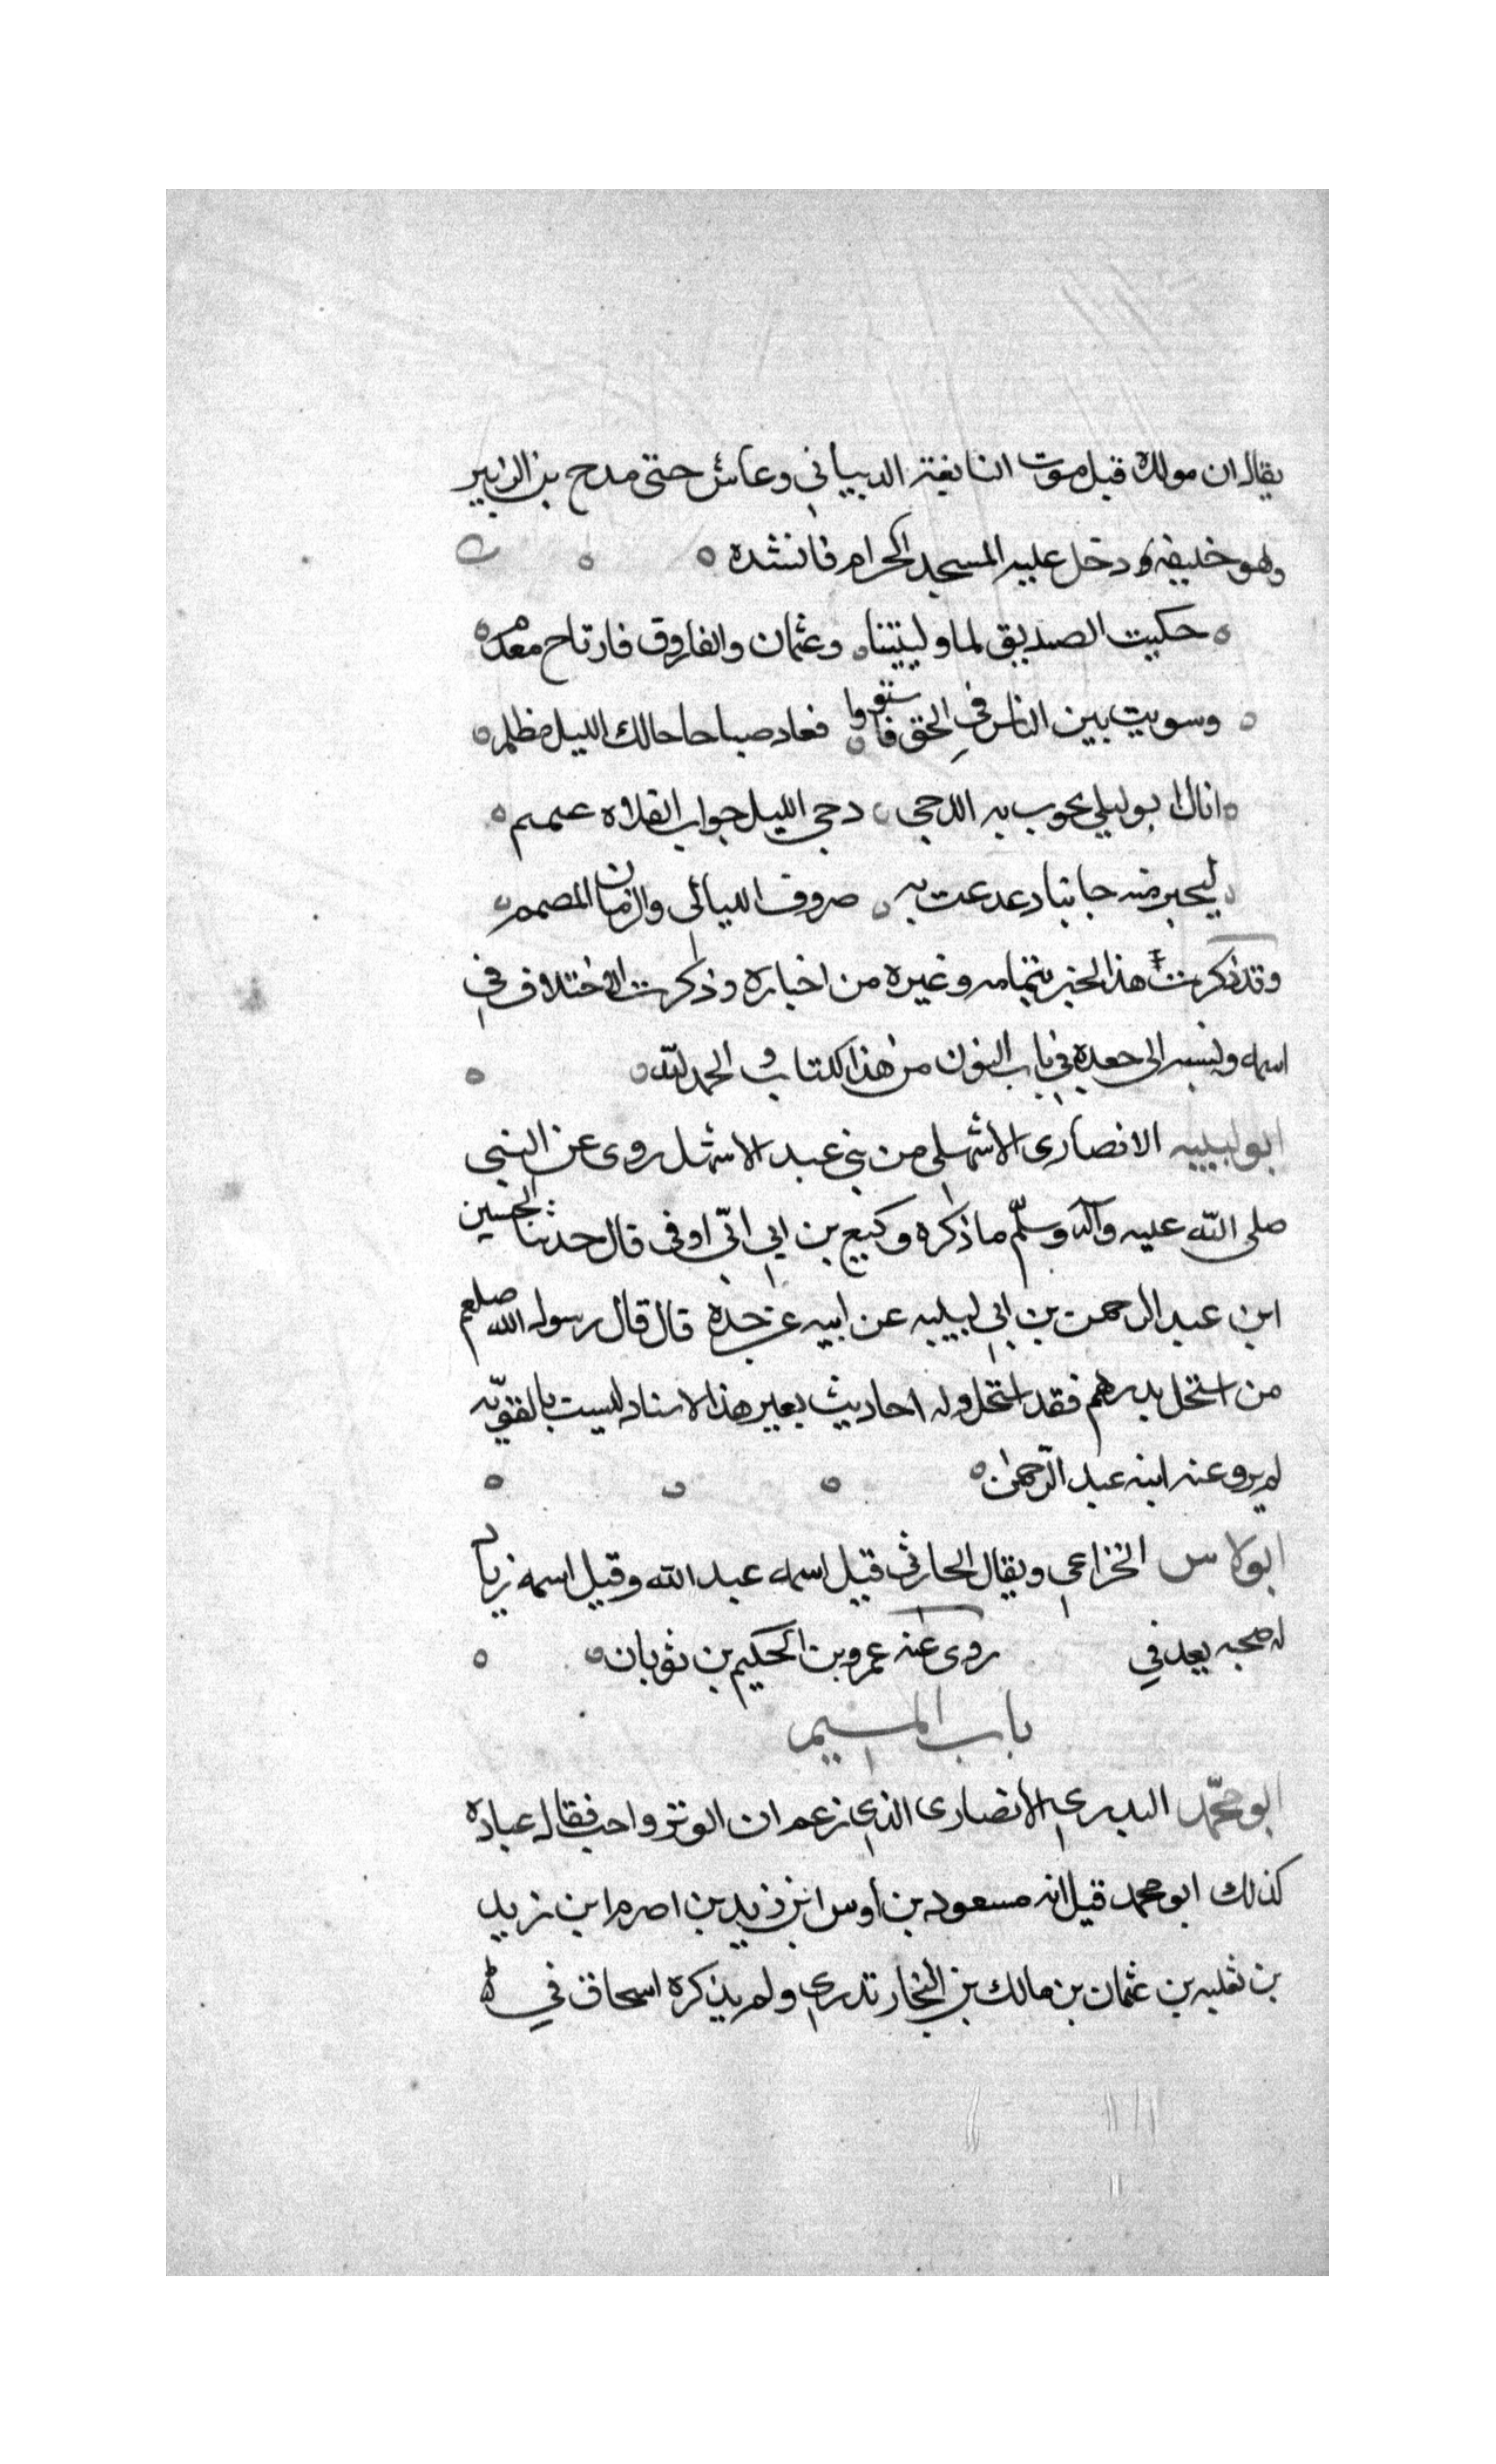 يقال ان مولده قبل موت النابغة الدبياني وعاش حتى مدح بن الزبير
وهو خليفة ودخل عليه المسجد الحرام فانشده
حكيت الصديق لما وليتنا وعثمان والفاروق فارتاح معدم
وسويت بين الناس في الحق فاستووا فعاد صباحا حالك الليل مظلم
اتاك ابو ليلى يجوب به الدجى دجى الليل جواب الفلاه عمم
ليجبر منه جانبا دعدعت به صروف الليالى والزمان المصمم
وقد ذكرت هذا الخبر بتمامه وغيره من اخباره وذكرت الاختلاف في
اسمه ونسبه الى جعدة في باب النون من هذا الكتاب والحمد لله
ابو لبيبه الانصارى الاشهلى من بني عبد الاشهل روى عن النبي
صلى الله عليه وآله وسلّم ما ذكره وكيع بن ابي اتى اوفى قال حدثنا الحسين
ابن عبد الرحمن بن ابي لبيبه عن ابيه عن جده قال قال رسول الله صلعم
من استحل بدرهم فقد استحل وله احاديث بعير هذا الاسناد ليست بالقويّه
لم يرو عنه ابنه عبد الرّحمن
ابو لاس الخزاعي ويقال الحارثي قيل اسمه عبد الله وقيل اسمه زياد
له صحبه يعد في روى عنه عمرو بن الحكيم بن ثوبان
باب الميم
ابو محمّد البدري الانصارى الذي زعم ان الوتر واجب فقال عباده
كذلك ابو محمد قيل انه مسعود بن أوس ابن زيد بن اصرم ابن زيد
بن ثعلبه بن عثمان بن مالك بن النجار تدري ولم يذكره اسحاق في